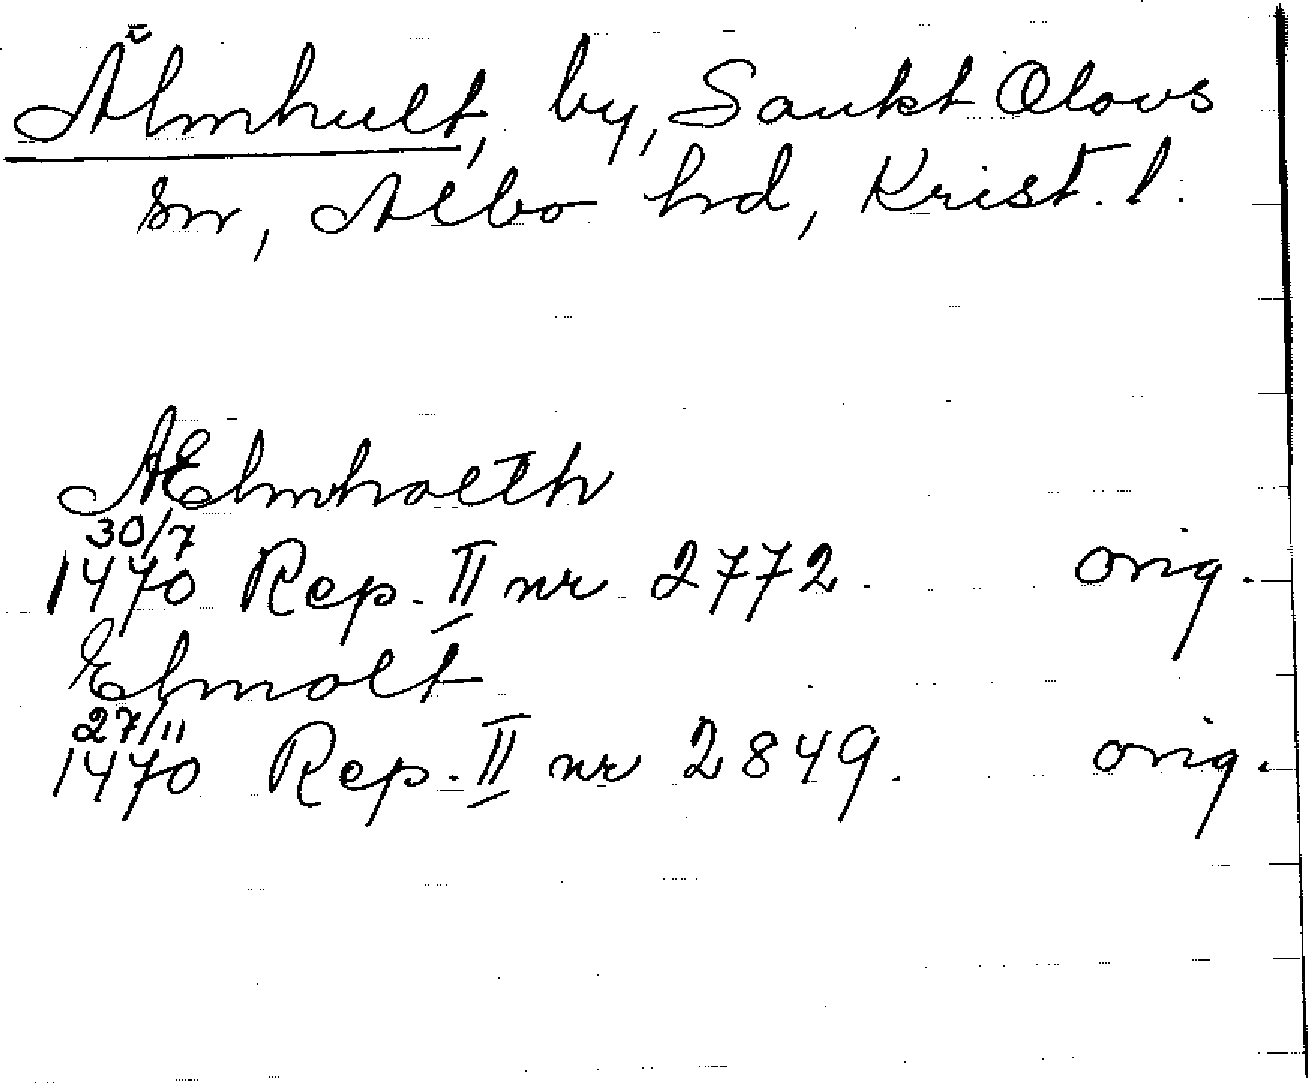 Älmhult, by, Sankt Olovs
sn, Albo hd, Krist. l.
AElmhollth
30/7
1470 Rep. II nr 2772. orig.
Elmolt
27/11
1470 Rep. II nr 2849. orig.